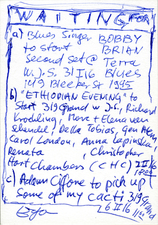 WAITING FOR
a) Blues Singer BOBBY
to start BRIAN
Second set @ Terra
W.J-S. 31 I 16 Blues
149 Bleecker St 1945
b) "ETHIOPIAN EVENING" to
start 319 Grand w J-S, Richard
Mark + Elena van
Della Tobias, Gen
Carol London, Anna
Renata, Christopher
Hart Chambers (CHC) 2 II 16
c) Adam Cifone to pick up
some of my cacti 319G
6 II 16